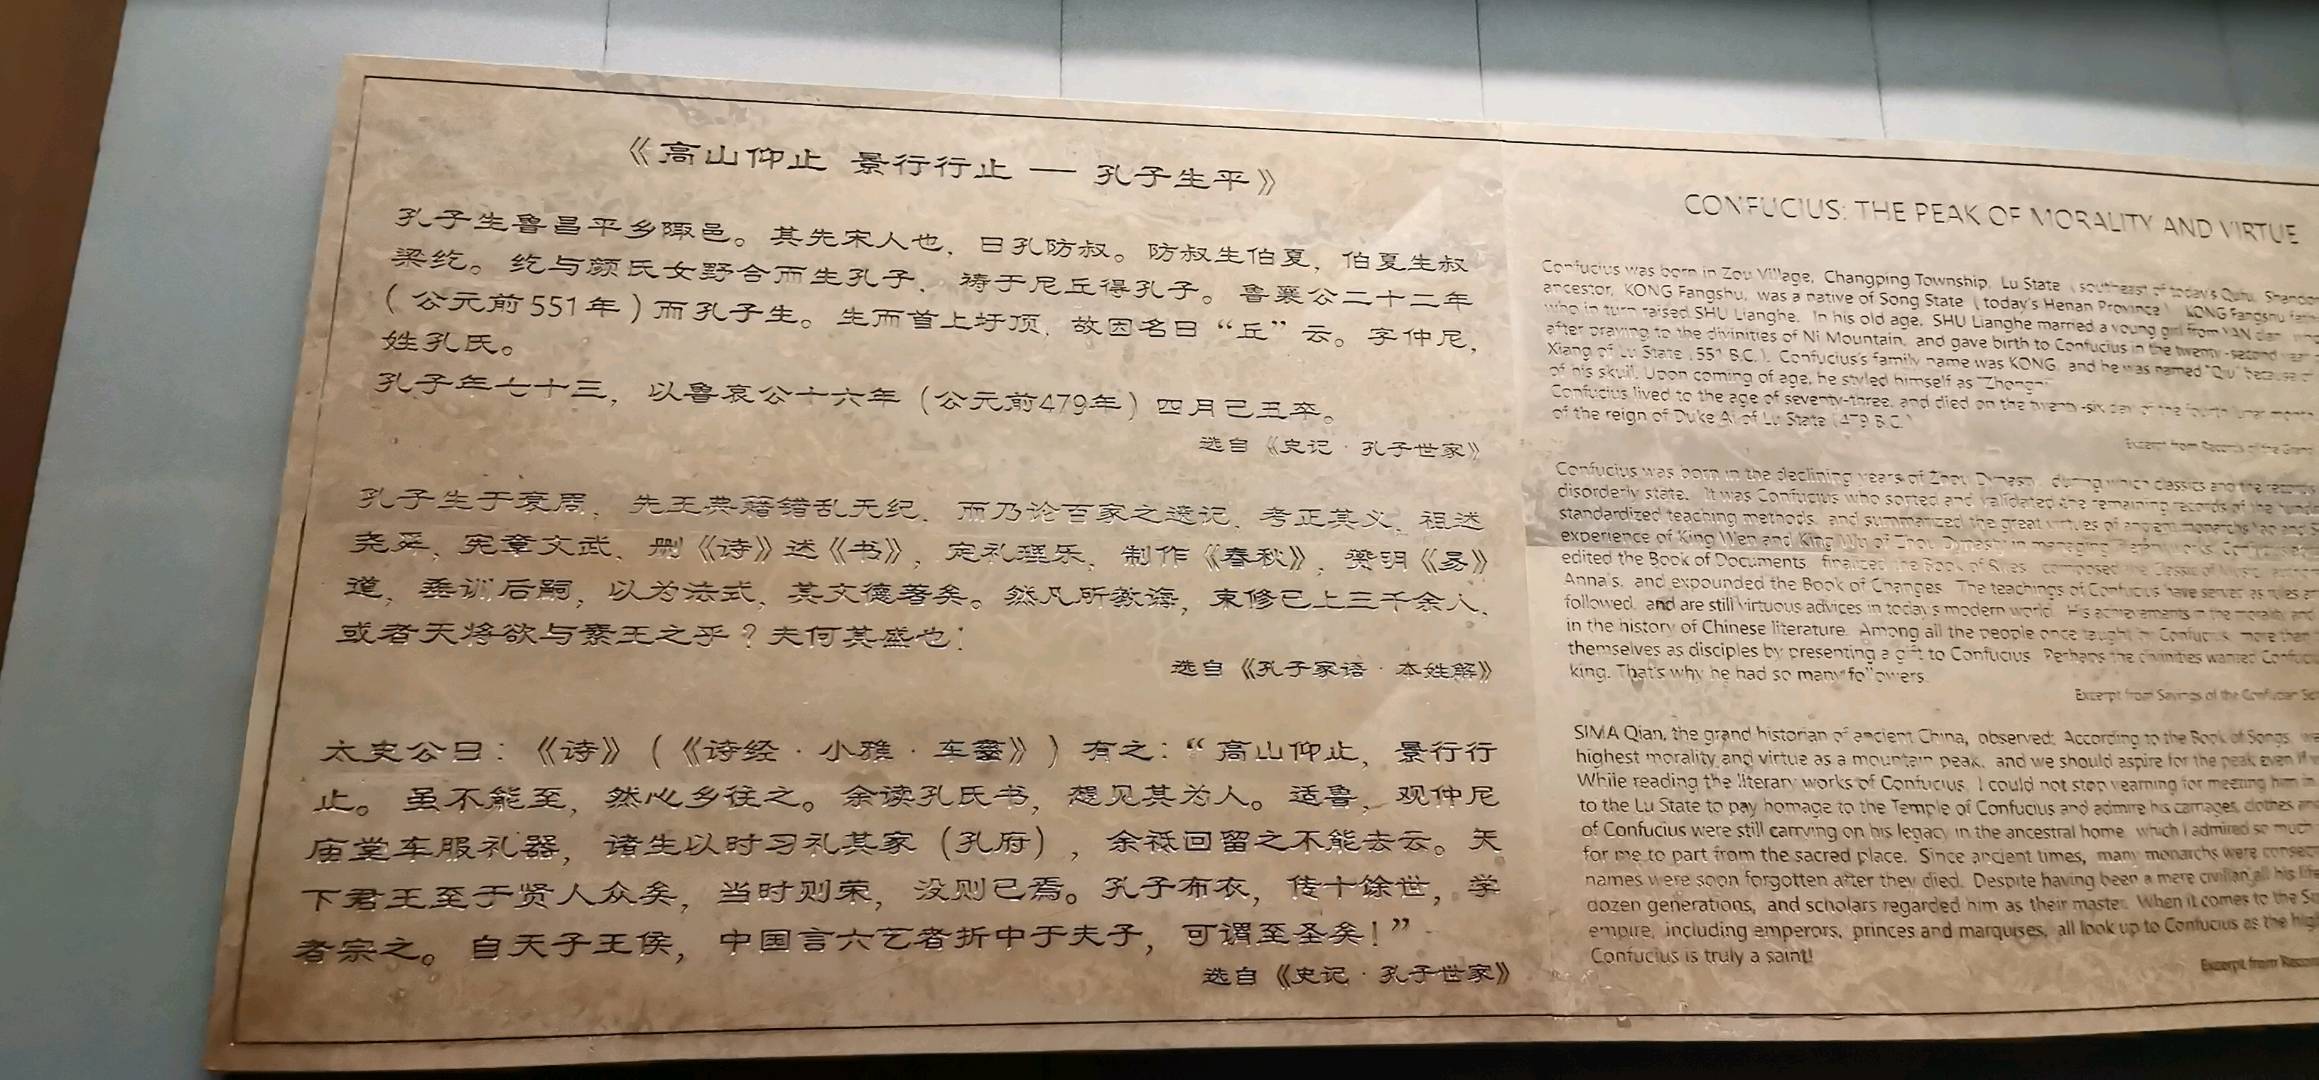 《高山仰止 景行行止 — 孔子生平》
孔子生鲁昌平乡陬邑。其先宋人也，曰孔防叔。防叔生伯夏，伯夏生叔
梁纥。纥与颜氏女野合而生孔子，祷于尼丘得孔子。鲁襄公二十二年
（公元前551年）而孔子生。生而首上圩顶，故因名曰“丘”云。字仲尼，
姓孔氏。
孔子年七十三，以鲁哀公十六年（公元前479年）四月己丑卒。
选自《史记·孔子世家》
孔子生于衰周，先王典籍错乱无纪，而乃论百家之遗记，考正其义，祖述
尧舜，宪章文武，删《诗》述《书》，定礼理乐，制作《春秋》，赞明《易》
道，垂训后嗣，以为法式，其文德著矣。然凡所教诲，束修已上三千余人，
或者天将欲与素王之乎？夫何其盛也！
选自《孔子家语·本姓解》
太史公曰：《诗》（《诗经·小雅·车舝》）有之：“高山仰止，景行行
止。虽不能至，然心乡往之。余读孔氏书，想见其为人。适鲁，观仲尼
庙堂车服礼器，诸生以时习礼其家（孔府），余祗回留之不能去云。天
下君王至于贤人众矣，当时则荣，没则已焉。孔子布衣，传十馀世，学
者宗之。自天子王侯，中国言六艺者折中于夫子，可谓至圣矣！”
选自《史记·孔子世家》
CONFUCIUS: THE PEAK OF MORALITY AND VIRTUE
Confucius was born in Zou Village, Changping Township, Lu State (southeast of today's Qufu,
ancestor, KONG Fangshu, was a native of Song State (today's Henan Province). KONG Fangshu
who in turn raised SHU Lianghe. In his old age, SHU Lianghe married a young girl from YAN clan,
after praying to the divinities of Ni Mountain, and gave birth to Confucius in the twenty-second year
Xiang of Lu State (551 B.C.). Confucius's family name was KONG, and he was named "Qiu" because of
of his skull. Upon coming of age, he styled himself as "Zhongni".
Confucius lived to the age of seventy-three, and died on the twenty-six day of the fourth lunar month
of the reign of Duke Ai of Lu State (479 B.C.)
Excerpt from Records of the Grand
Confucius was born in the declining years of Zhou Dynasty, during which classics and the
disorderly state. It was Confucius who sorted and validated the remaining records of the
standardized teaching methods, and summarized the great virtues of ancient monarchs Yao and
experience of King Wen and King Wu of Zhou Dynasty in managing
edited the Book of Documents, finalized the Book of Rites, composed the Classic of Music,
Annals, and expounded the Book of Changes. The teachings of Confucius have served as rules
followed, and are still virtuous advices in today's modern world. His achievements in the morality and
in the history of Chinese literature. Among all the people once taught by Confucius, more than
themselves as disciples by presenting a gift to Confucius. Perhaps the divinities wanted
king. That's why he had so many followers.
Excerpt from Sayings of the Confucian
SIMA Qian, the grand historian of ancient China, observed: According to the Book of Songs, we
highest morality and virtue as a mountain peak, and we should aspire for the peak even if
While reading the literary works of Confucius, I could not stop yearning for meeting him in
to the Lu State to pay homage to the Temple of Confucius and admire his carriages, clothes and
of Confucius were still carrying on his legacy in the ancestral home, which I admired so much
for me to part from the sacred place. Since ancient times, many monarchs were
names were soon forgotten after they died. Despite having been a mere civilian all his life
dozen generations, and scholars regarded him as their master. When it comes to the
empire, including emperors, princes and marquises, all look up to Confucius as the
Confucius is truly a saint!
Excerpt from